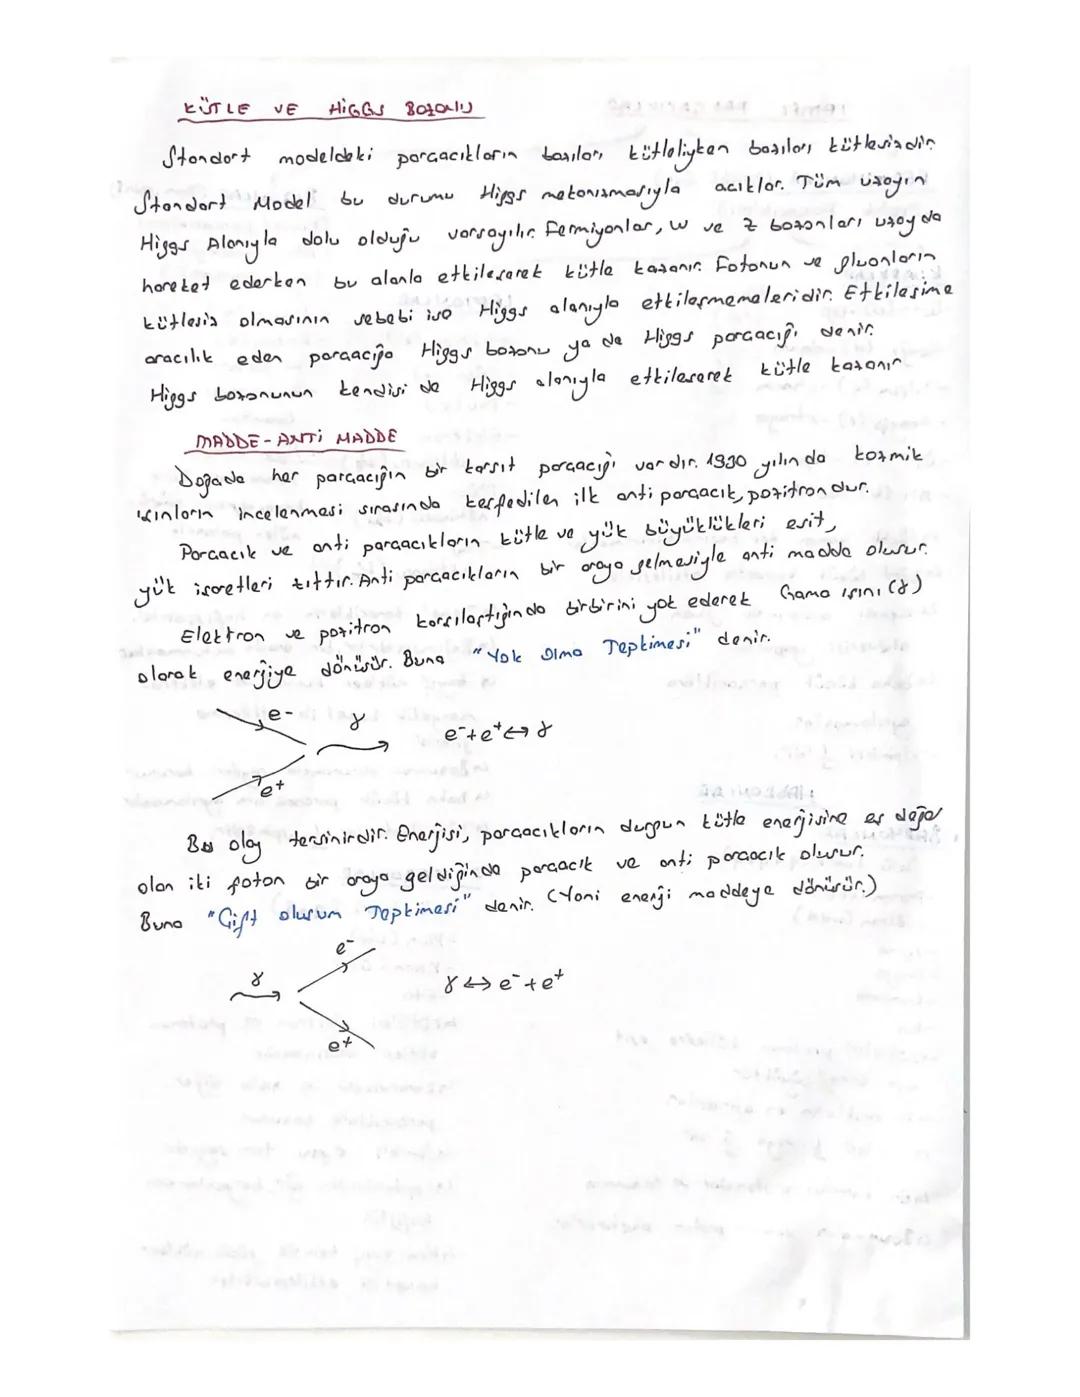 KÜTLE VE HiGGS BOZONU
Standart modeldeki parçacıkların bazıları kütleliyken bazıları kütlesizdir.
Standart Model bu durumu Higgs mekanizmasıyla acıklar. Tüm uzayın
Higgs Alanıyla dolu olduğu varsayılır. Fermiyonlar, W ve Z bozonları uzayda
hareket ederken bu alanla etkileserek kütle kazanır. Fotonun ve gluonların
kütlesiz olmasının sebebi ise Higgs alanıyla etkileşmemeleridir. Etkileşime
aracılık eden parçacığa Higgs bozonu ya da Higgs parçacığı denir.
Higgs bozonunun kendisi de Higgs alanıyla etkileserek kütle kazanır.
MADDE-ANTi MADDE
Doğada her parçacığın bir karşıt parçacığı vardır. 1930 yılında kozmik
ışınların incelenmesi sırasında keşfedilen ilk anti parçacık, pozitrondur.
Parçacık ve anti parçacıkların kütle ve yük büyüklükleri eşit,
yük işaretleri zıttır. Anti parçacıkların bir araya gelmesiyle anti madde oluşur.
Elektron ve pozitron karşılaştığında birbirini yok ederek Gama ışını (γ)
olarak enerjiye dönüşür. Buna "Yok Olma Tepkimesi" denir.
e- γ e⁻+e⁺↔γ
e+
Bu olay tersinirdir. Enerjisi, parçacıkların durgun kütle enerjisine eş değer
olan iki foton bir araya geldiğinde parçacık ve anti parçacık oluşur.
Buna "Çift oluşum Tepkimesi" denir. (Yani enerji maddeye dönüşür.)
e⁻
γ γ↔e⁻+e⁺
e+